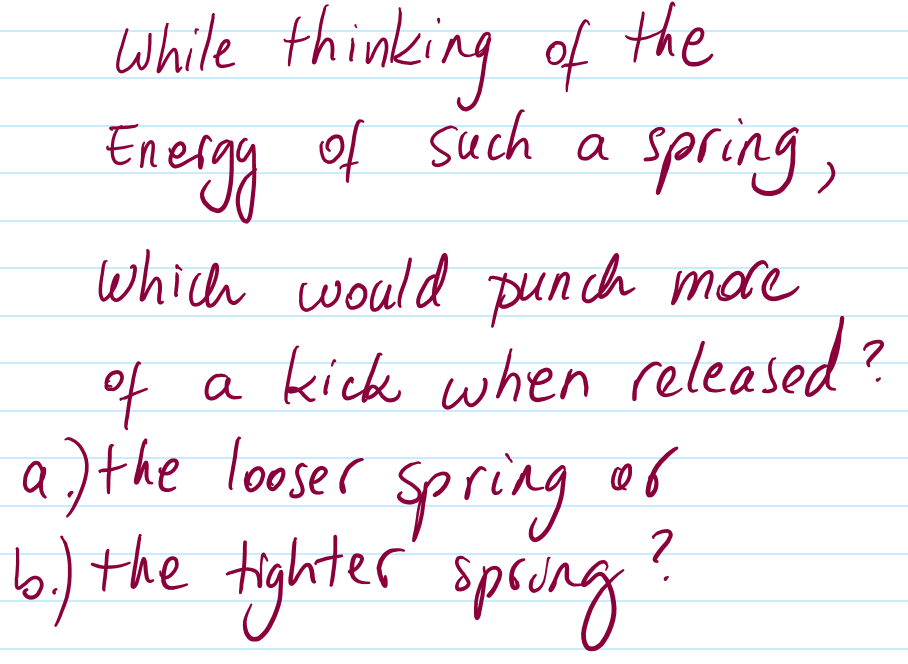 While thinking of the
Energy of such a spring,
Which would punch more
of a kick when released?
a.) the looser spring or
b.) the tighter spring?